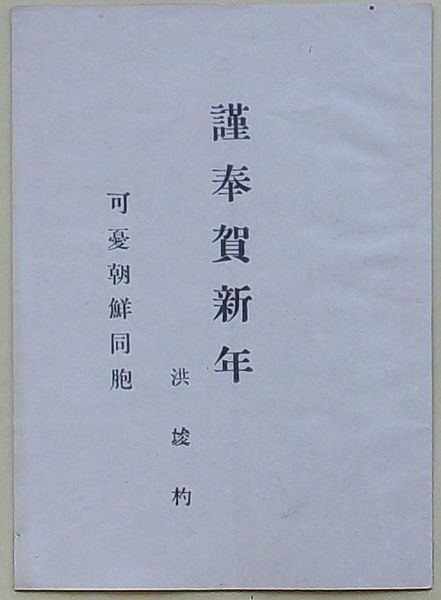 謹奉賀新年
洪埈杓
可憂朝鮮同胞